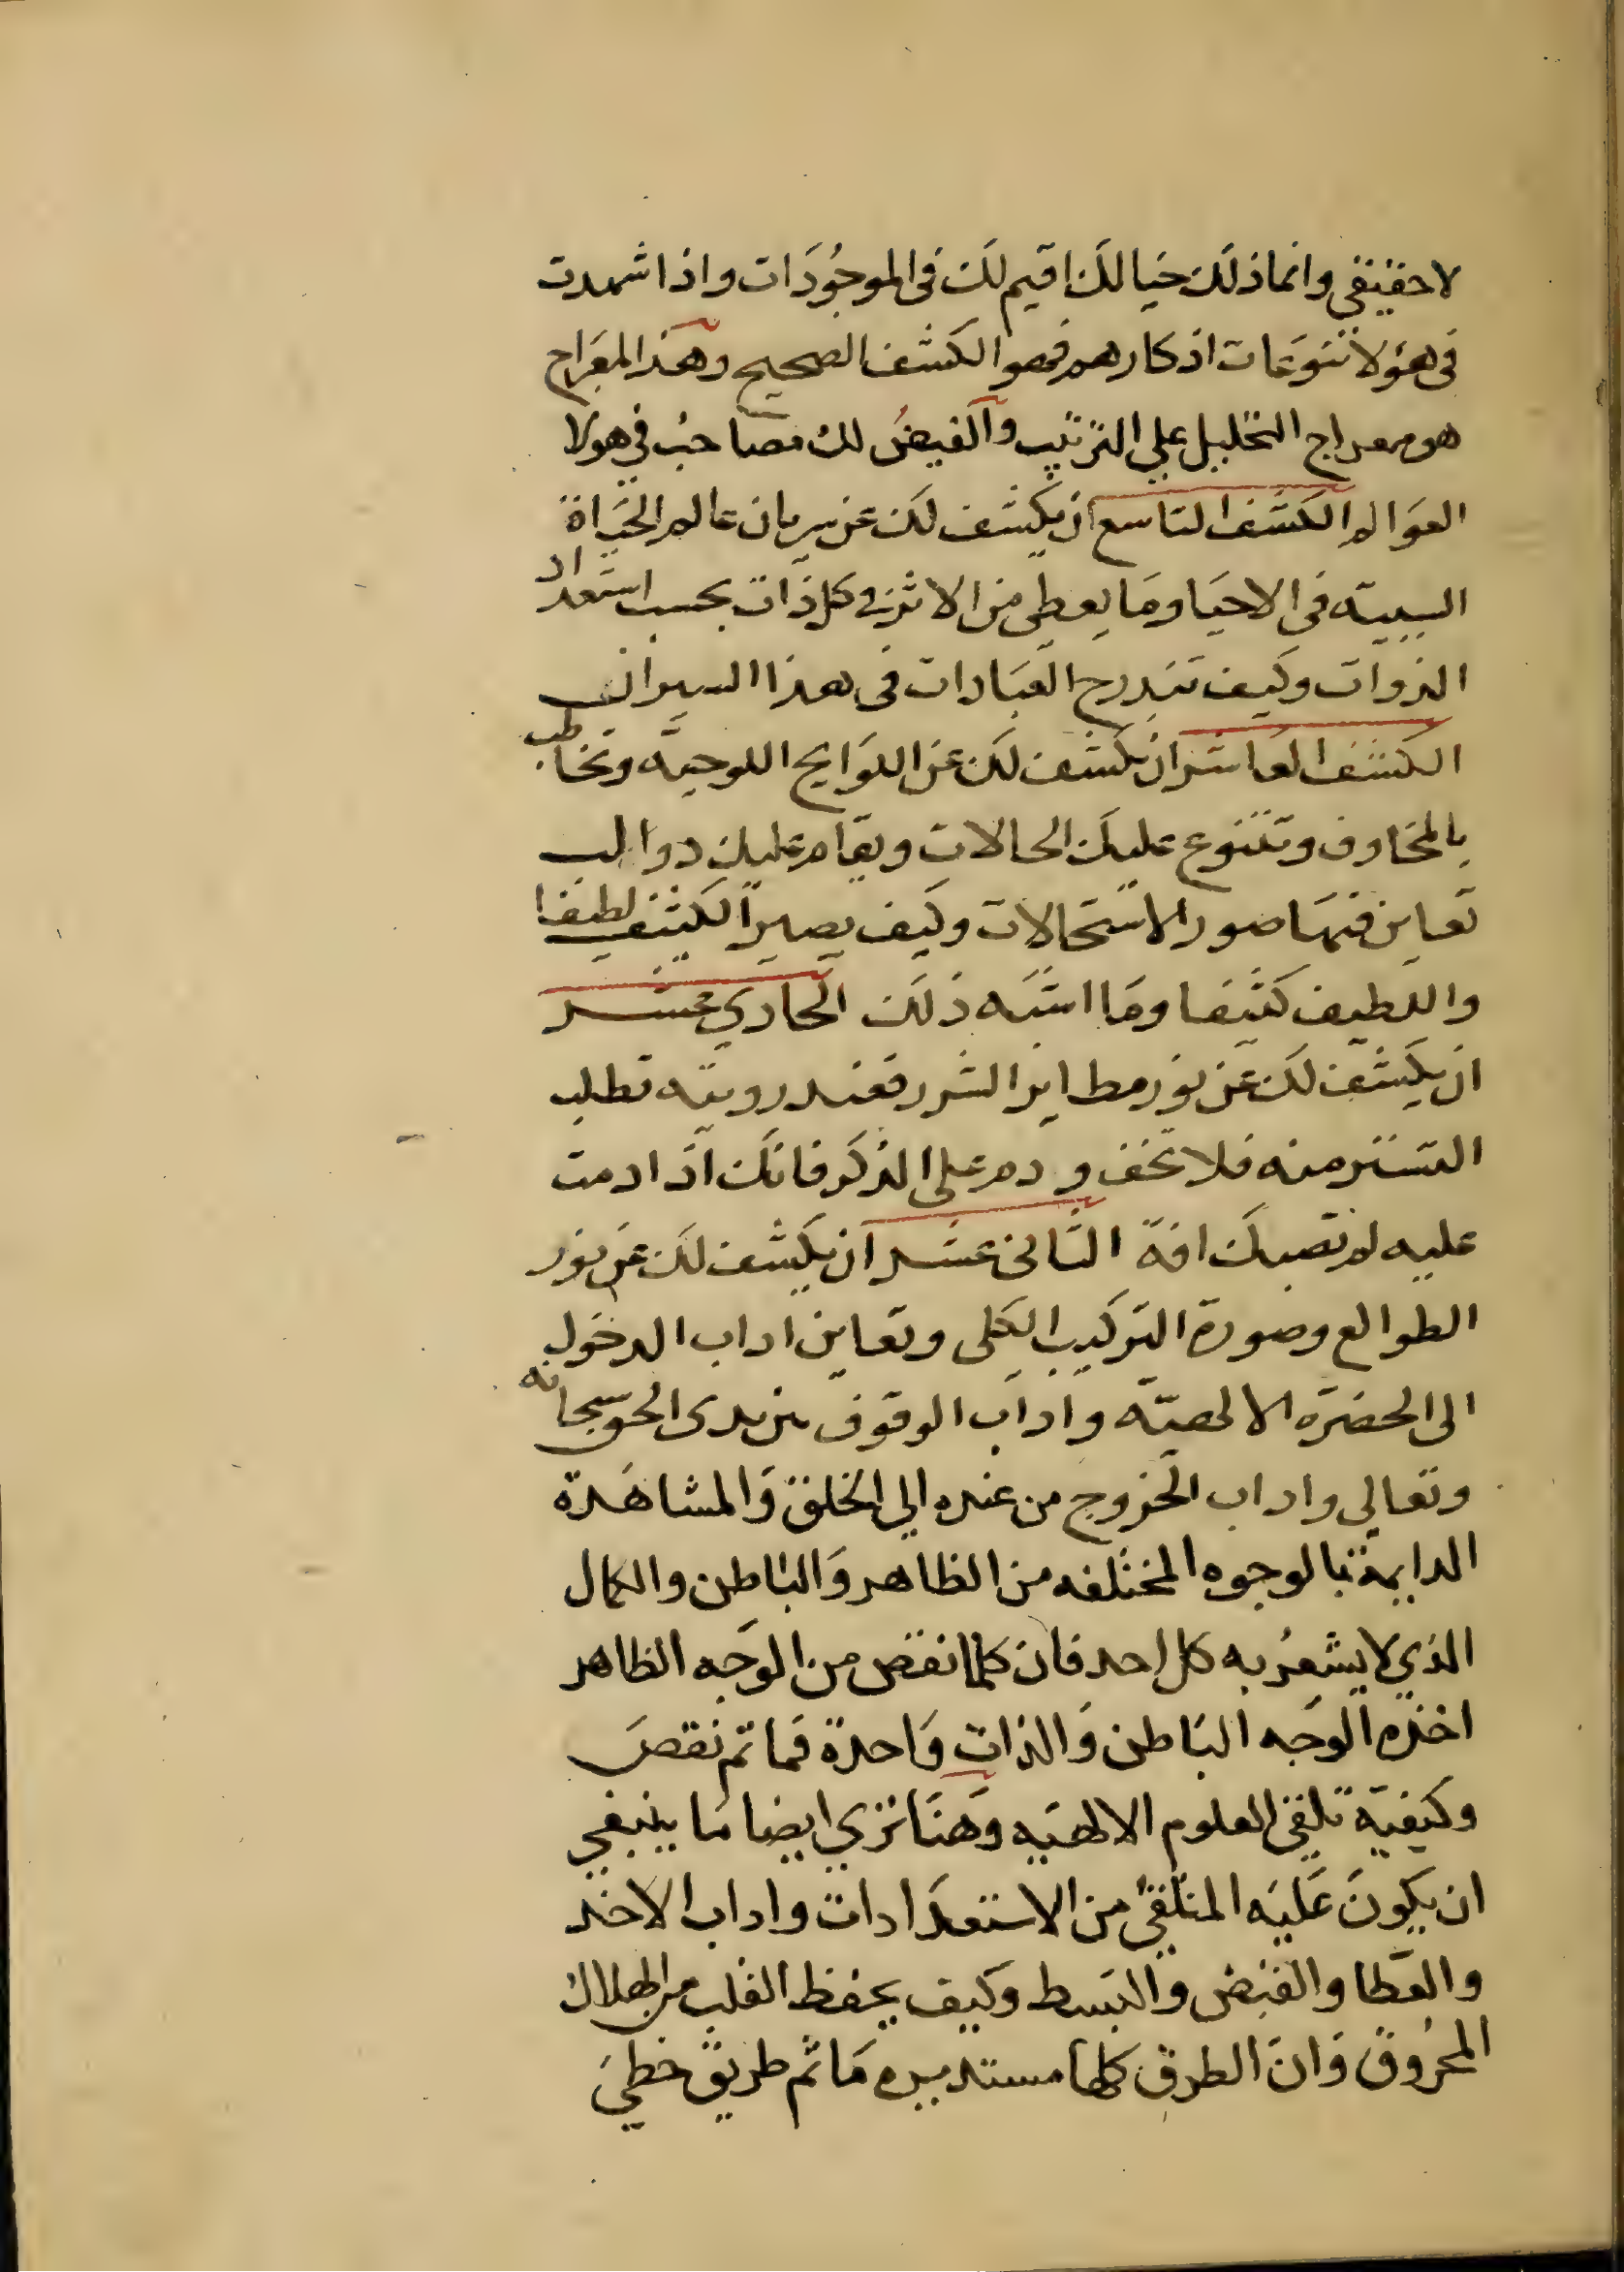 لا حقيقي وانما ذلك خيالك اقيم لك في الموجُودَات واذا شهدت
في هؤلا تنوعَات اذكارهم فهو الكشف الصحيح وهذا المعَراج
هو معراج التحليل علي الترتيب والقبضُ لك مصاحبُ في هولا
العوَالم الكشف التاسع ان يكشف لك عن سريان عالم الحيَاة
السببيه في الاحيَا ومَا يعطي من الاثر في كل ذات بحسب استعداد
الذوات وكيف تندرج العبَادات في هذا السريان
الكشف العَاشر ان يكشف لك عن اللوَايح اللوحيَّه وتخاطب
بالمخاوف وتتنوع عليك الحالات ويقام عليك دوالب
تعاين فيهَا صور الاستحالات وكيف يصير الكثيف لطيفا
واللطيف كثيفا ومَا اشبَه ذلك الحَادي عشر
ان يكشف لك عن نور مطاير الشرر فعند رويته تطلب
التستر منه فلا تخف ودم علي الذكر فانك اذا دمت
عليه لم تصبك افة الثاني عشر ان يكشف لك عن نور
الطوالع وصورة التركيب الكلي وتعاين اداب الدخول
الي الحضرَه الالهيّه واداب الوقوف بين يدي الحق سبحانه
وتعالي واداب الخروج من عنده الي الخلق وَالمشاهَدة
الدايمة بالوجوه المختلفه من الظاهر وَالبَاطن والكمال
الذي لا يشعُر به كل احد فان كلما نقص من الوَجه الظاهر
اخذه الوَجه البَاطن وَالذات وَاحدة فمَا ثم نقصَ
وكيفيَة تلقي العلوم الالهيَه وَهنَا تري ايضا مَا ينبغي
ان يكونَ عَليَه المتلقي من الاستعدَادات واداب الاخذ
والعَطا والقبَض وَالبَسط وكيف يحفظ القلب من الهلاك
المحرُوق وَان الطرق كلها مستديره مَا ثم طريق خطي